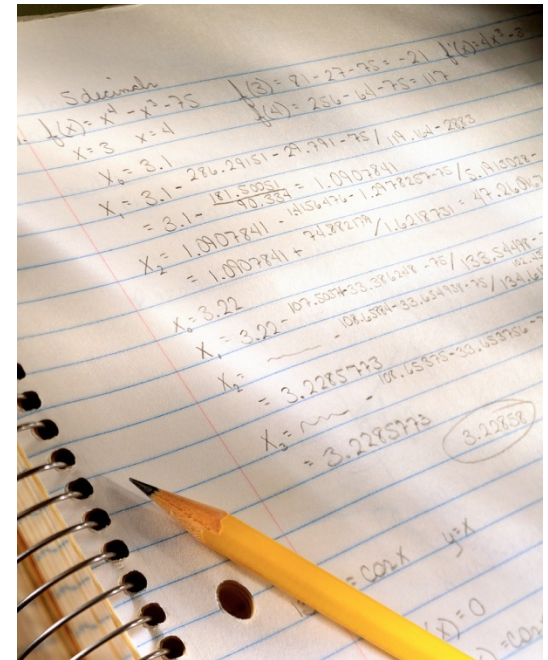 5 decimals
f(x) = x⁴ - x³ - 75 f(3) = 81 - 27 - 75 = -21 f'(x) = 4x³ - 3
x = 3 x = 4 f(4) = 256 - 64 - 75 = 117
X₀ = 3.1
X₁ = 3.1 - 286.29151 - 29.791 - 75 / 119.164 - 2883
= 3.1 - 181.50051 / 90.334 = 1.0907841
X₂ = 1.0907841 - 1.4156476 - 1.2978257 - 75 / 5.1913028 -
= 1.0907841 + 74.882179 / 1.6218731 = 47.260967
X₀ = 3.22
X₁ = 3.22 - 107.50574 - 33.386248 - 75 / 133.54498 -
X₂ = - 108.65884 - 33.654939 - 75 / 134.61
= 3.2285773
X₃ = - 108.65375 - 33.653756 - 7
= 3.2285773 3.22858
= cos x y = x
(x) = 0
= cos